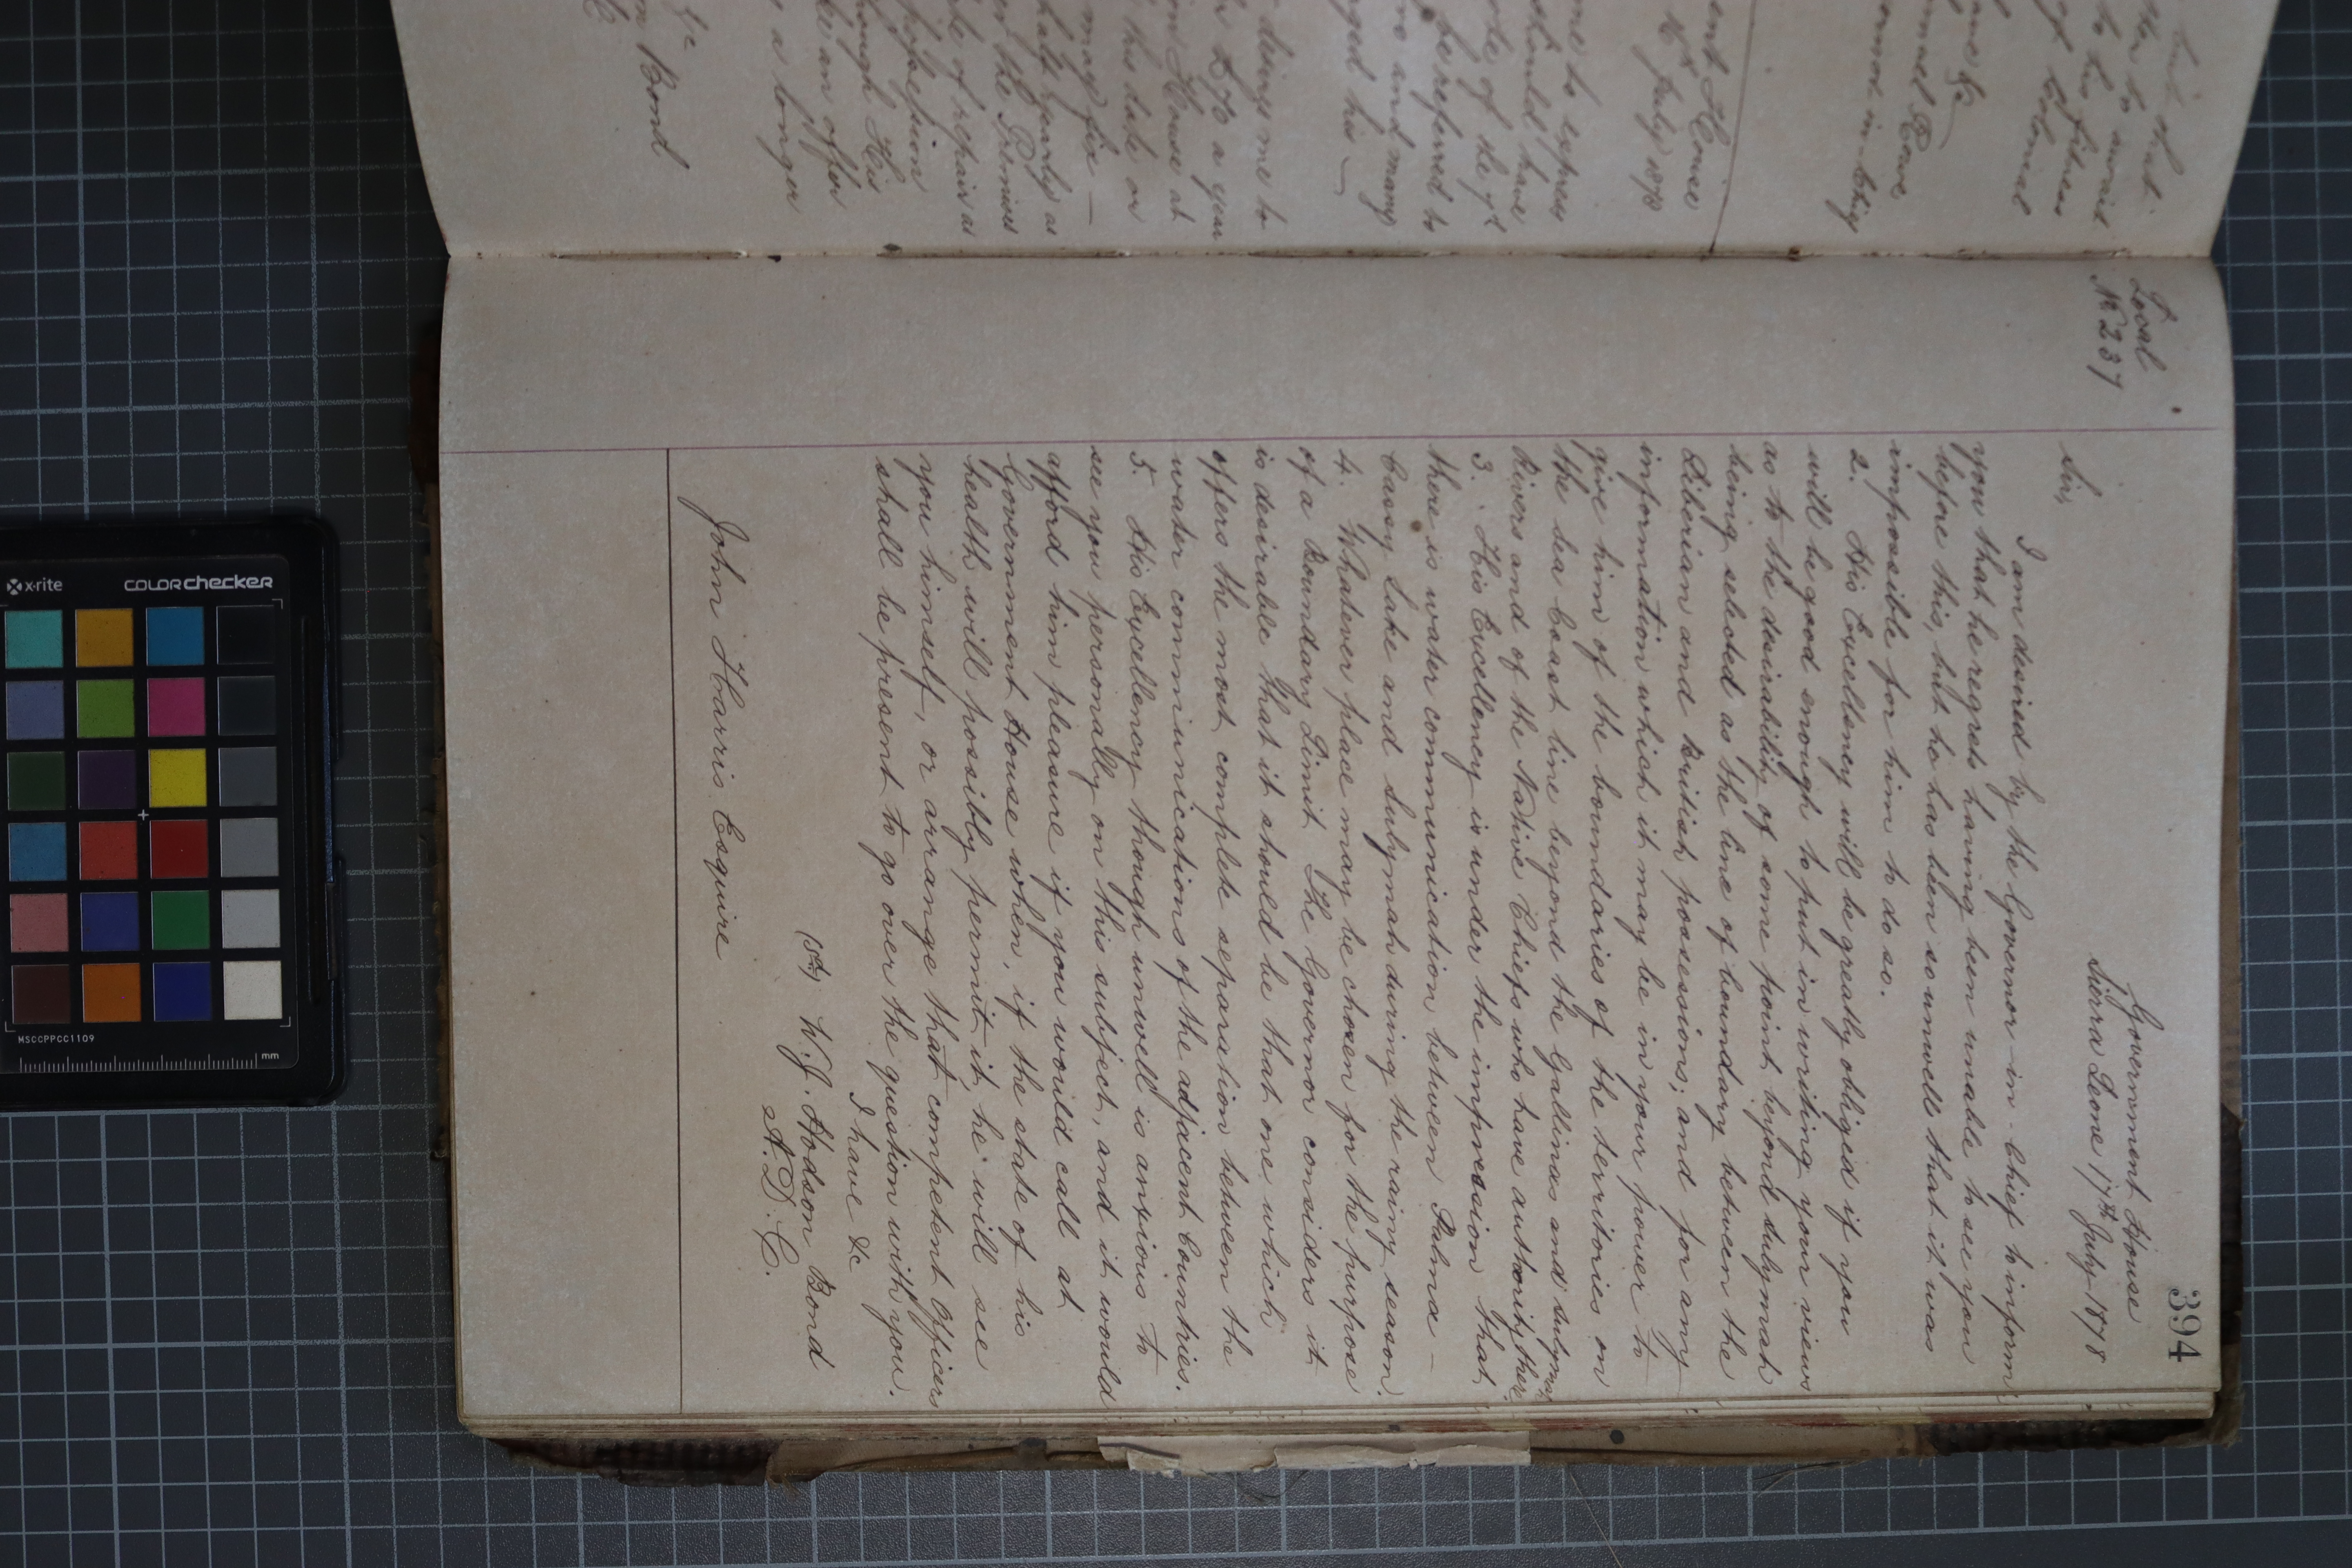 394
Local
No 237
Government House
Sierra Leone 17th July 1878
Sir,
I am desired by the Governor-in-Chief to inform
you that he regrets having been unable to see you
before this, but he has been so unwell that it was
impossible for him to do so.
2. His Excellency will be greatly obliged if you
will be good enough to put in writing your views
as to the desirability of some point beyond Sulymah
being selected as the line of boundary between the
Liberian and British possessions; and for any
information which it may be in your power to
give him of the boundaries of the territories on
the Sea Coast line beyond the Gallinas and Sulymah
Rivers and of the Native Chiefs who have authority there
3. His Excellency is under the impression that
there is water communication between Palma -
Cassy Lake and Sulymah during the rainy season.
4. Whatever place may be chosen for the purpose
of a Boundary Limit The Governor considers it
is desirable that it should be that one which
offers the most complete separation between the
water communications of the adjacent Countries.
5. His Excellency though unwell is anxious to
see you personally on this subject, and it would
afford him pleasure if you would call at
Government House when, if the state of his
health will possibly permit it, he will see
you himself, or arrange that competent Officers
shall be present to go over the question with you.
I have &c
(Sd) W. J. Hodson Bond
A.D.C.
John Harris Esquire
that
to his fitness
Colonial
Rowe
House
July 1878
me to express
should have
be referred to
and many
his —
desires me to
a year
House at
this date or
may fix —
yearly as
the Premises
of repair as
possession
His
an offer
a longer
&c
Bond
x-rite
COLORchecker
MSCCPPCC1109
mm